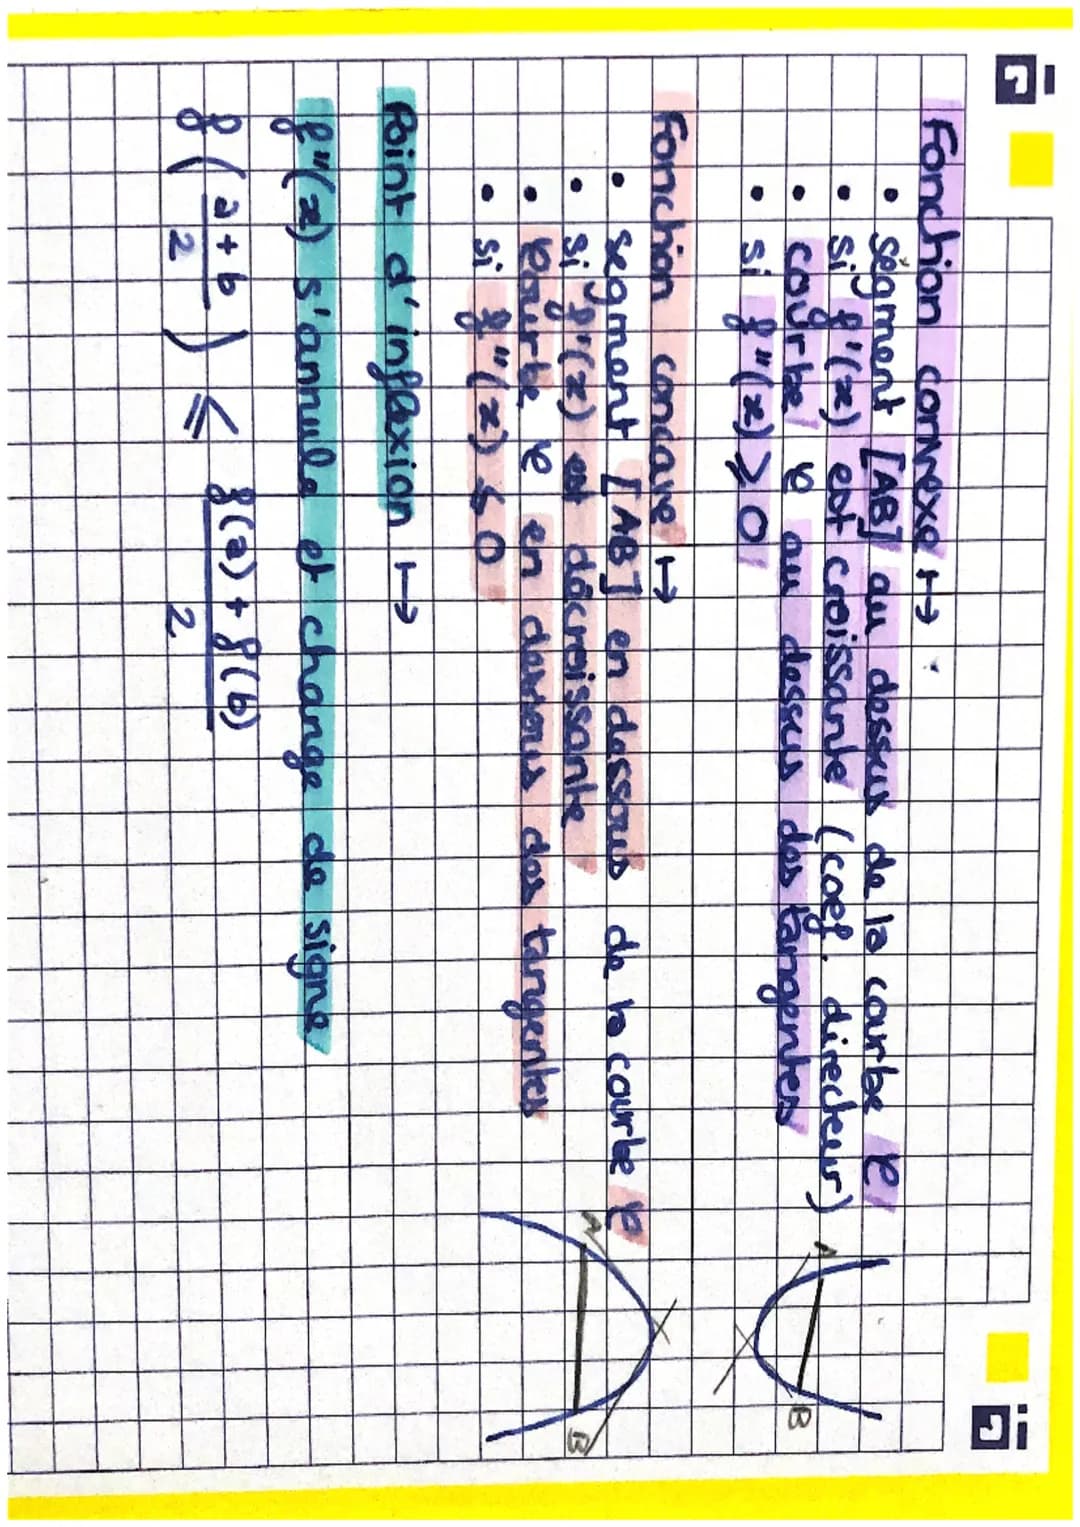 Fonction convexe ↦
• segment [AB] au dessus de la courbe 𝒞
• si f'(x) est croissante (coef. directeur)
• courbe 𝒞 au dessus des tangentes
• si f''(x) ⩾ 0
A
B
Fonction concave ↦
• segment [AB] en dessous de la courbe 𝒞
• si f'(x) est décroissante
• courbe 𝒞 en dessous des tangentes
• si f''(x) ⩽ 0
A
B
Point d'inflexion ↦
f''(x) s'annule et change de signe
f((a+b)/2) ⩽ (f(a)+f(b))/2